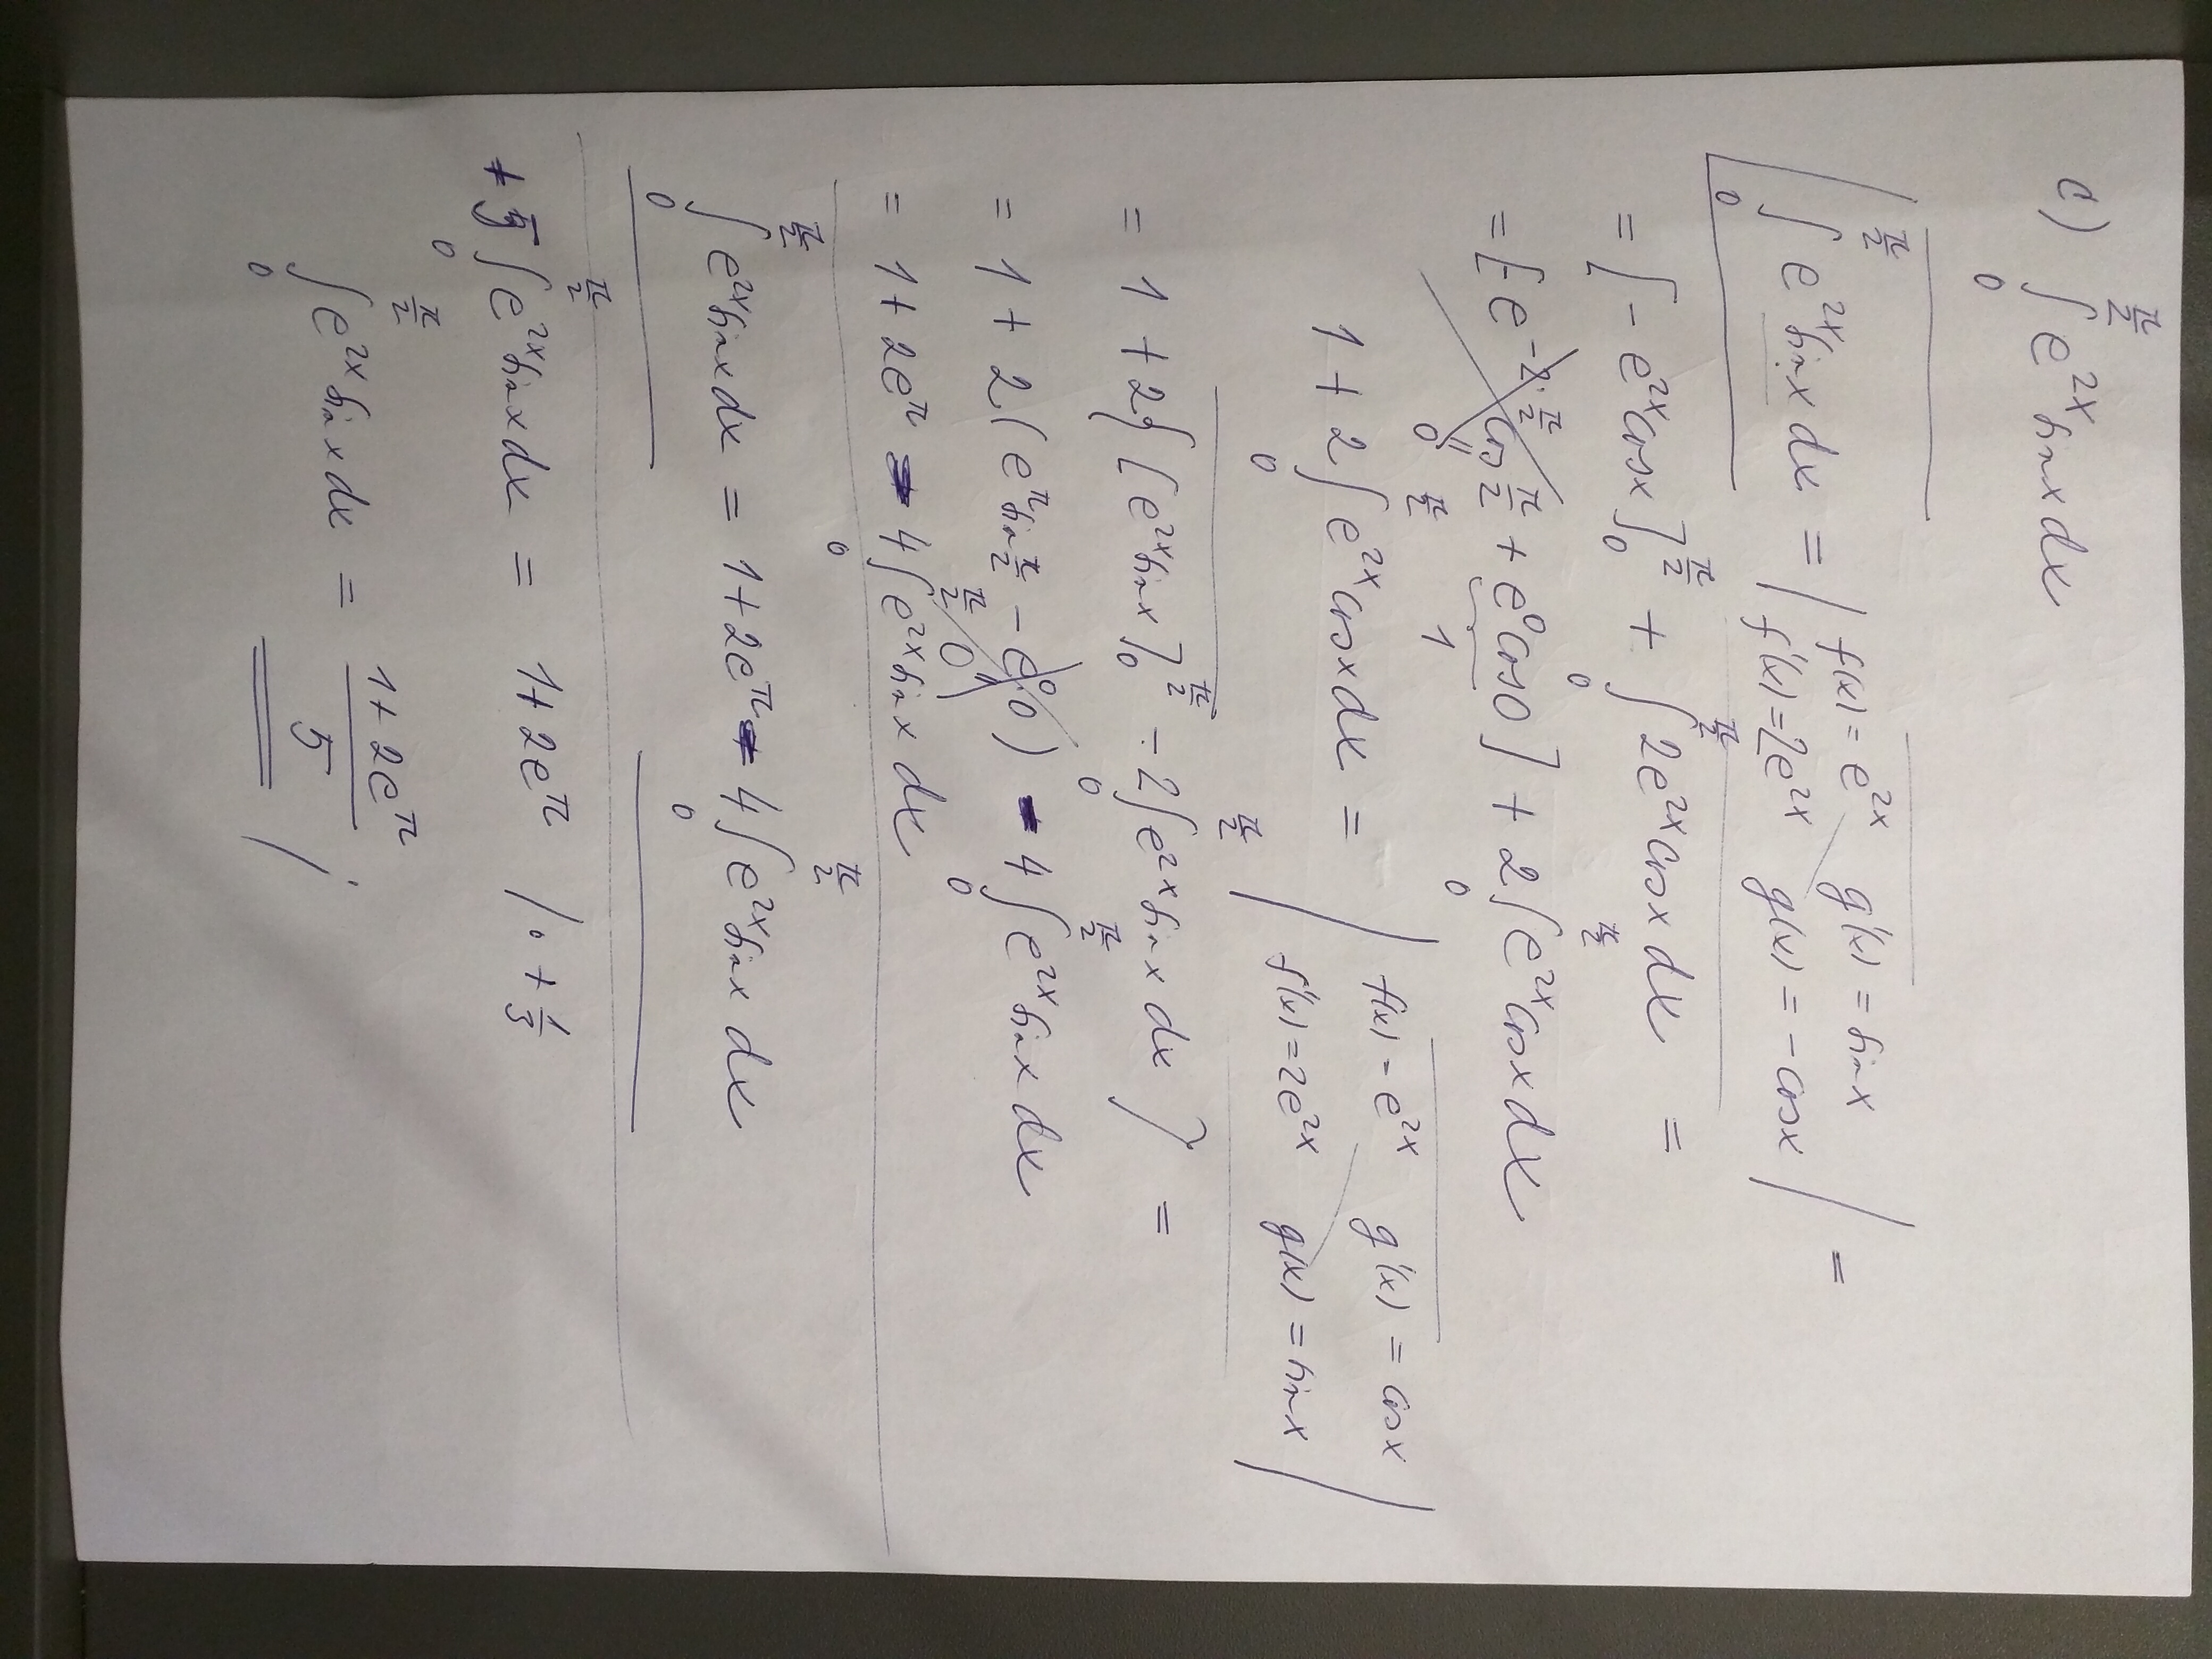 c) ∫₀^{π/2} e^{2x} sin x dx
∫₀^{π/2} e^{2x} sin x dx = | f(x) = e^{2x} g'(x) = sin x f'(x) = 2e^{2x} g(x) = -cos x | =
= [- e^{2x} cos x]₀^{π/2} + ∫₀^{π/2} 2e^{2x} cos x dx =
= [-e^{-2·π/2} cos π/2 + e⁰ cos 0] + 2∫₀^{π/2} e^{2x} cos x dx
0 1
1 + 2∫₀^{π/2} e^{2x} cos x dx = | f(x) - e^{2x} g'(x) = cos x f'(x) = 2e^{2x} g(x) = sin x |
= 1 + 2{ [e^{2x} sin x]₀^{π/2} - 2∫₀^{π/2} e^{2x} sin x dx } =
= 1 + 2(e^π sin π/2 - e⁰·0) - 4∫₀^{π/2} e^{2x} sin x dx
0
= 1 + 2e^π - 4∫₀^{π/2} e^{2x} sin x dx
∫₀^{π/2} e^{2x} sin x dx = 1 + 2e^π - 4∫₀^{π/2} e^{2x} sin x dx
+ 5∫₀^{π/2} e^{2x} sin x dx = 1 + 2e^π /· + 1/3
∫₀^{π/2} e^{2x} sin x dx = (1 + 2e^π)/5 ;